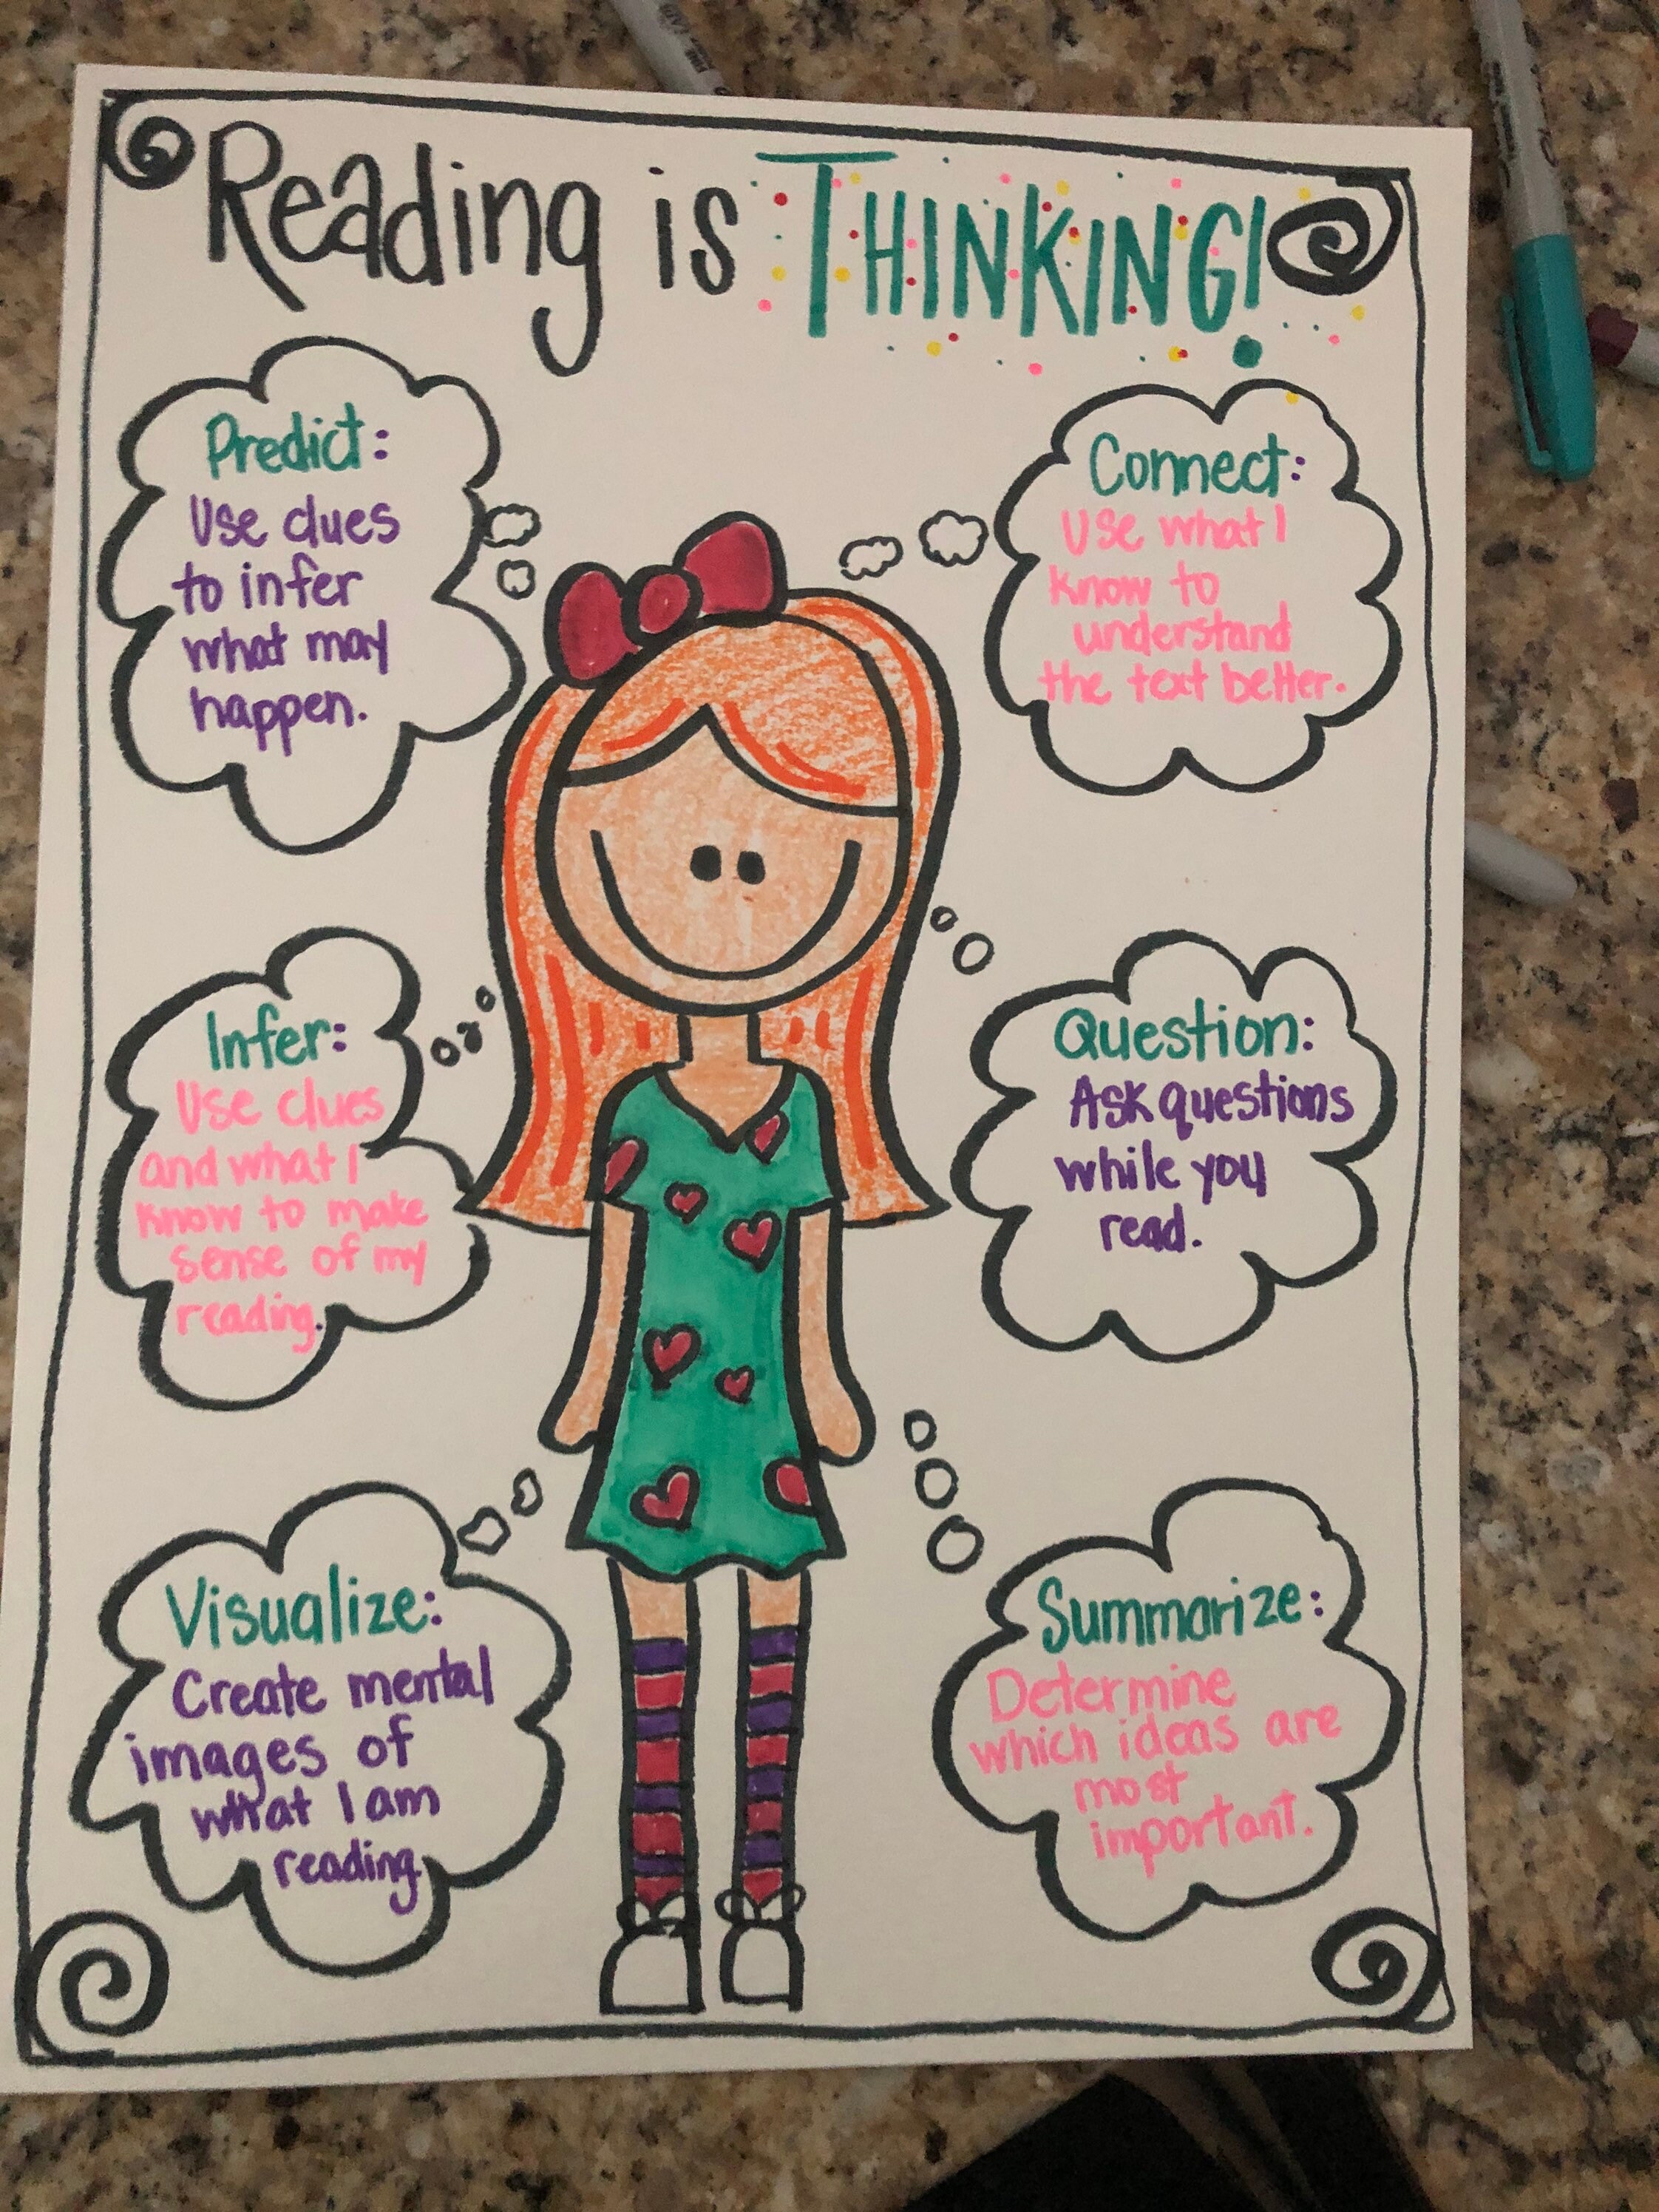 Reading is THINKING!
Predict:
Use clues
to infer
what may
happen.
Connect:
Use what I
know to
understand
the text better.
Infer:
Use clues
and what I
know to make
sense of my
reading.
Question:
Ask questions
while you
read.
Visualize:
Create mental
images of
what I am
reading.
Summarize:
Determine
which ideas are
most
important.